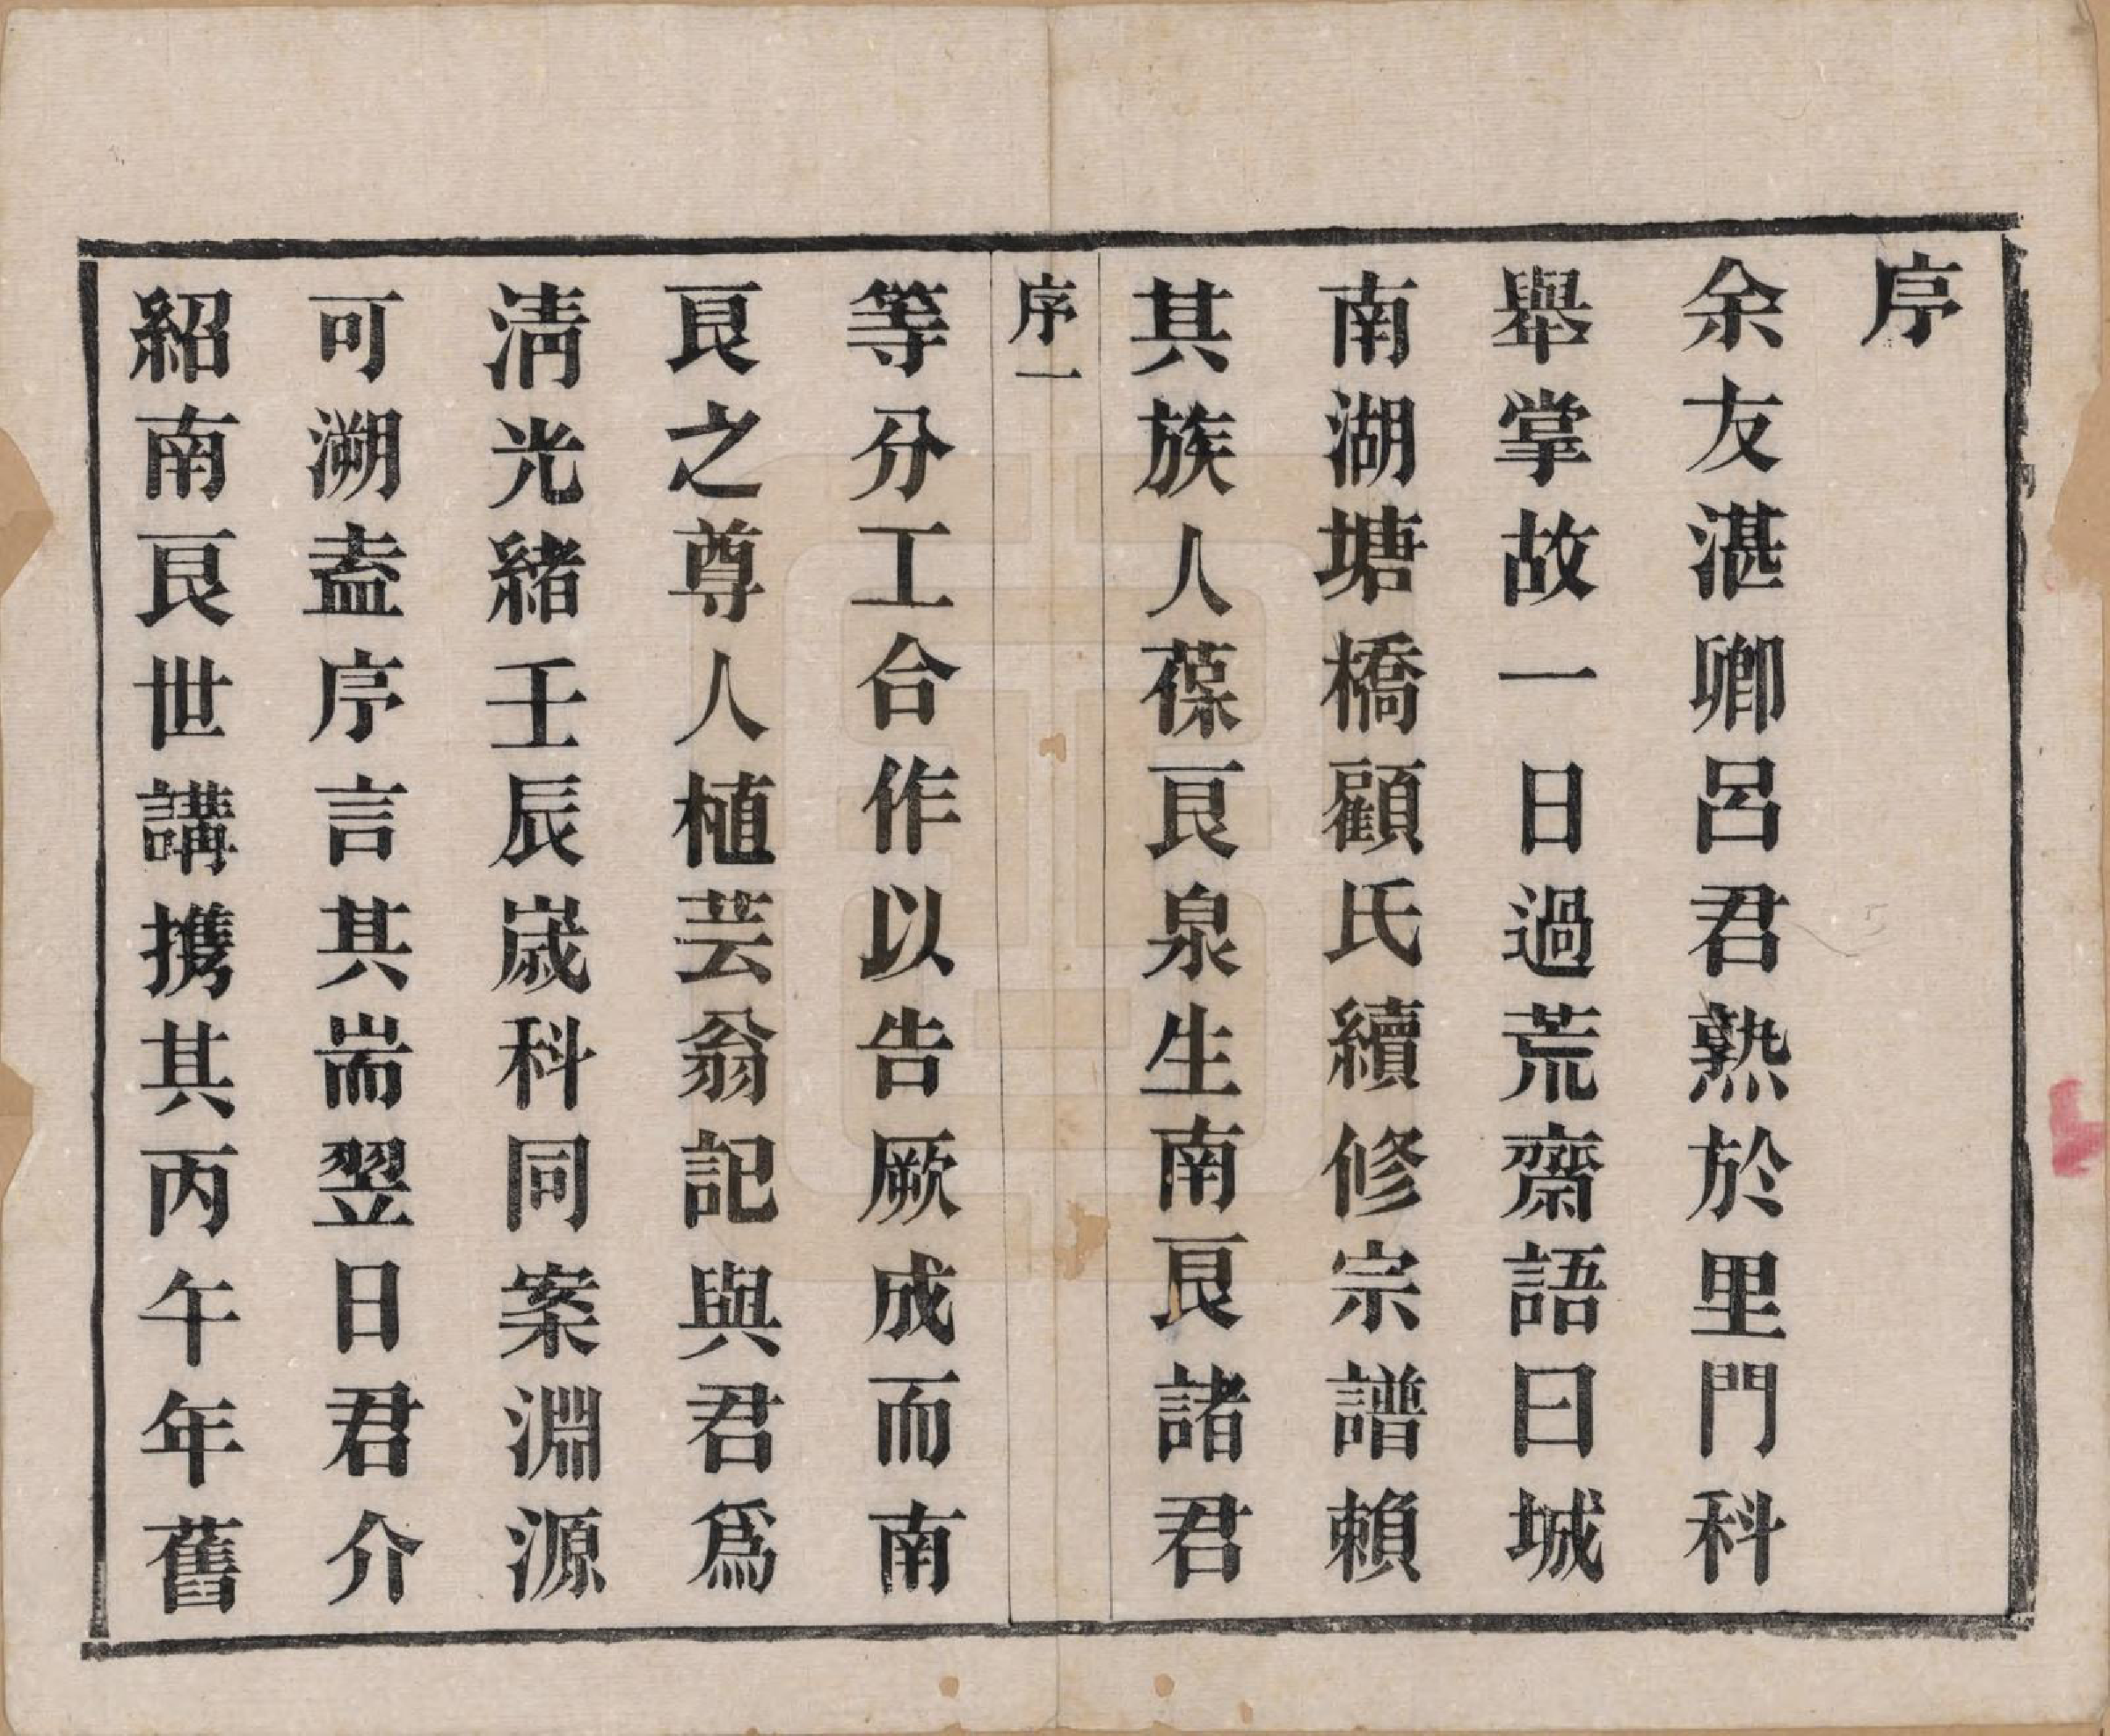 序
余友湛卿呂君熟於里門科
舉掌故一日過荒齋語曰城
南湖塘橋顧氏續修宗譜賴
其族人葆艮泉生南艮諸君
序一
等分工合作以告厥成而南
艮之尊人植芸翁記與君爲
清光緒壬辰歲科同案淵源
可溯盍序言其耑翌日君介
紹南艮世講携其丙午年舊